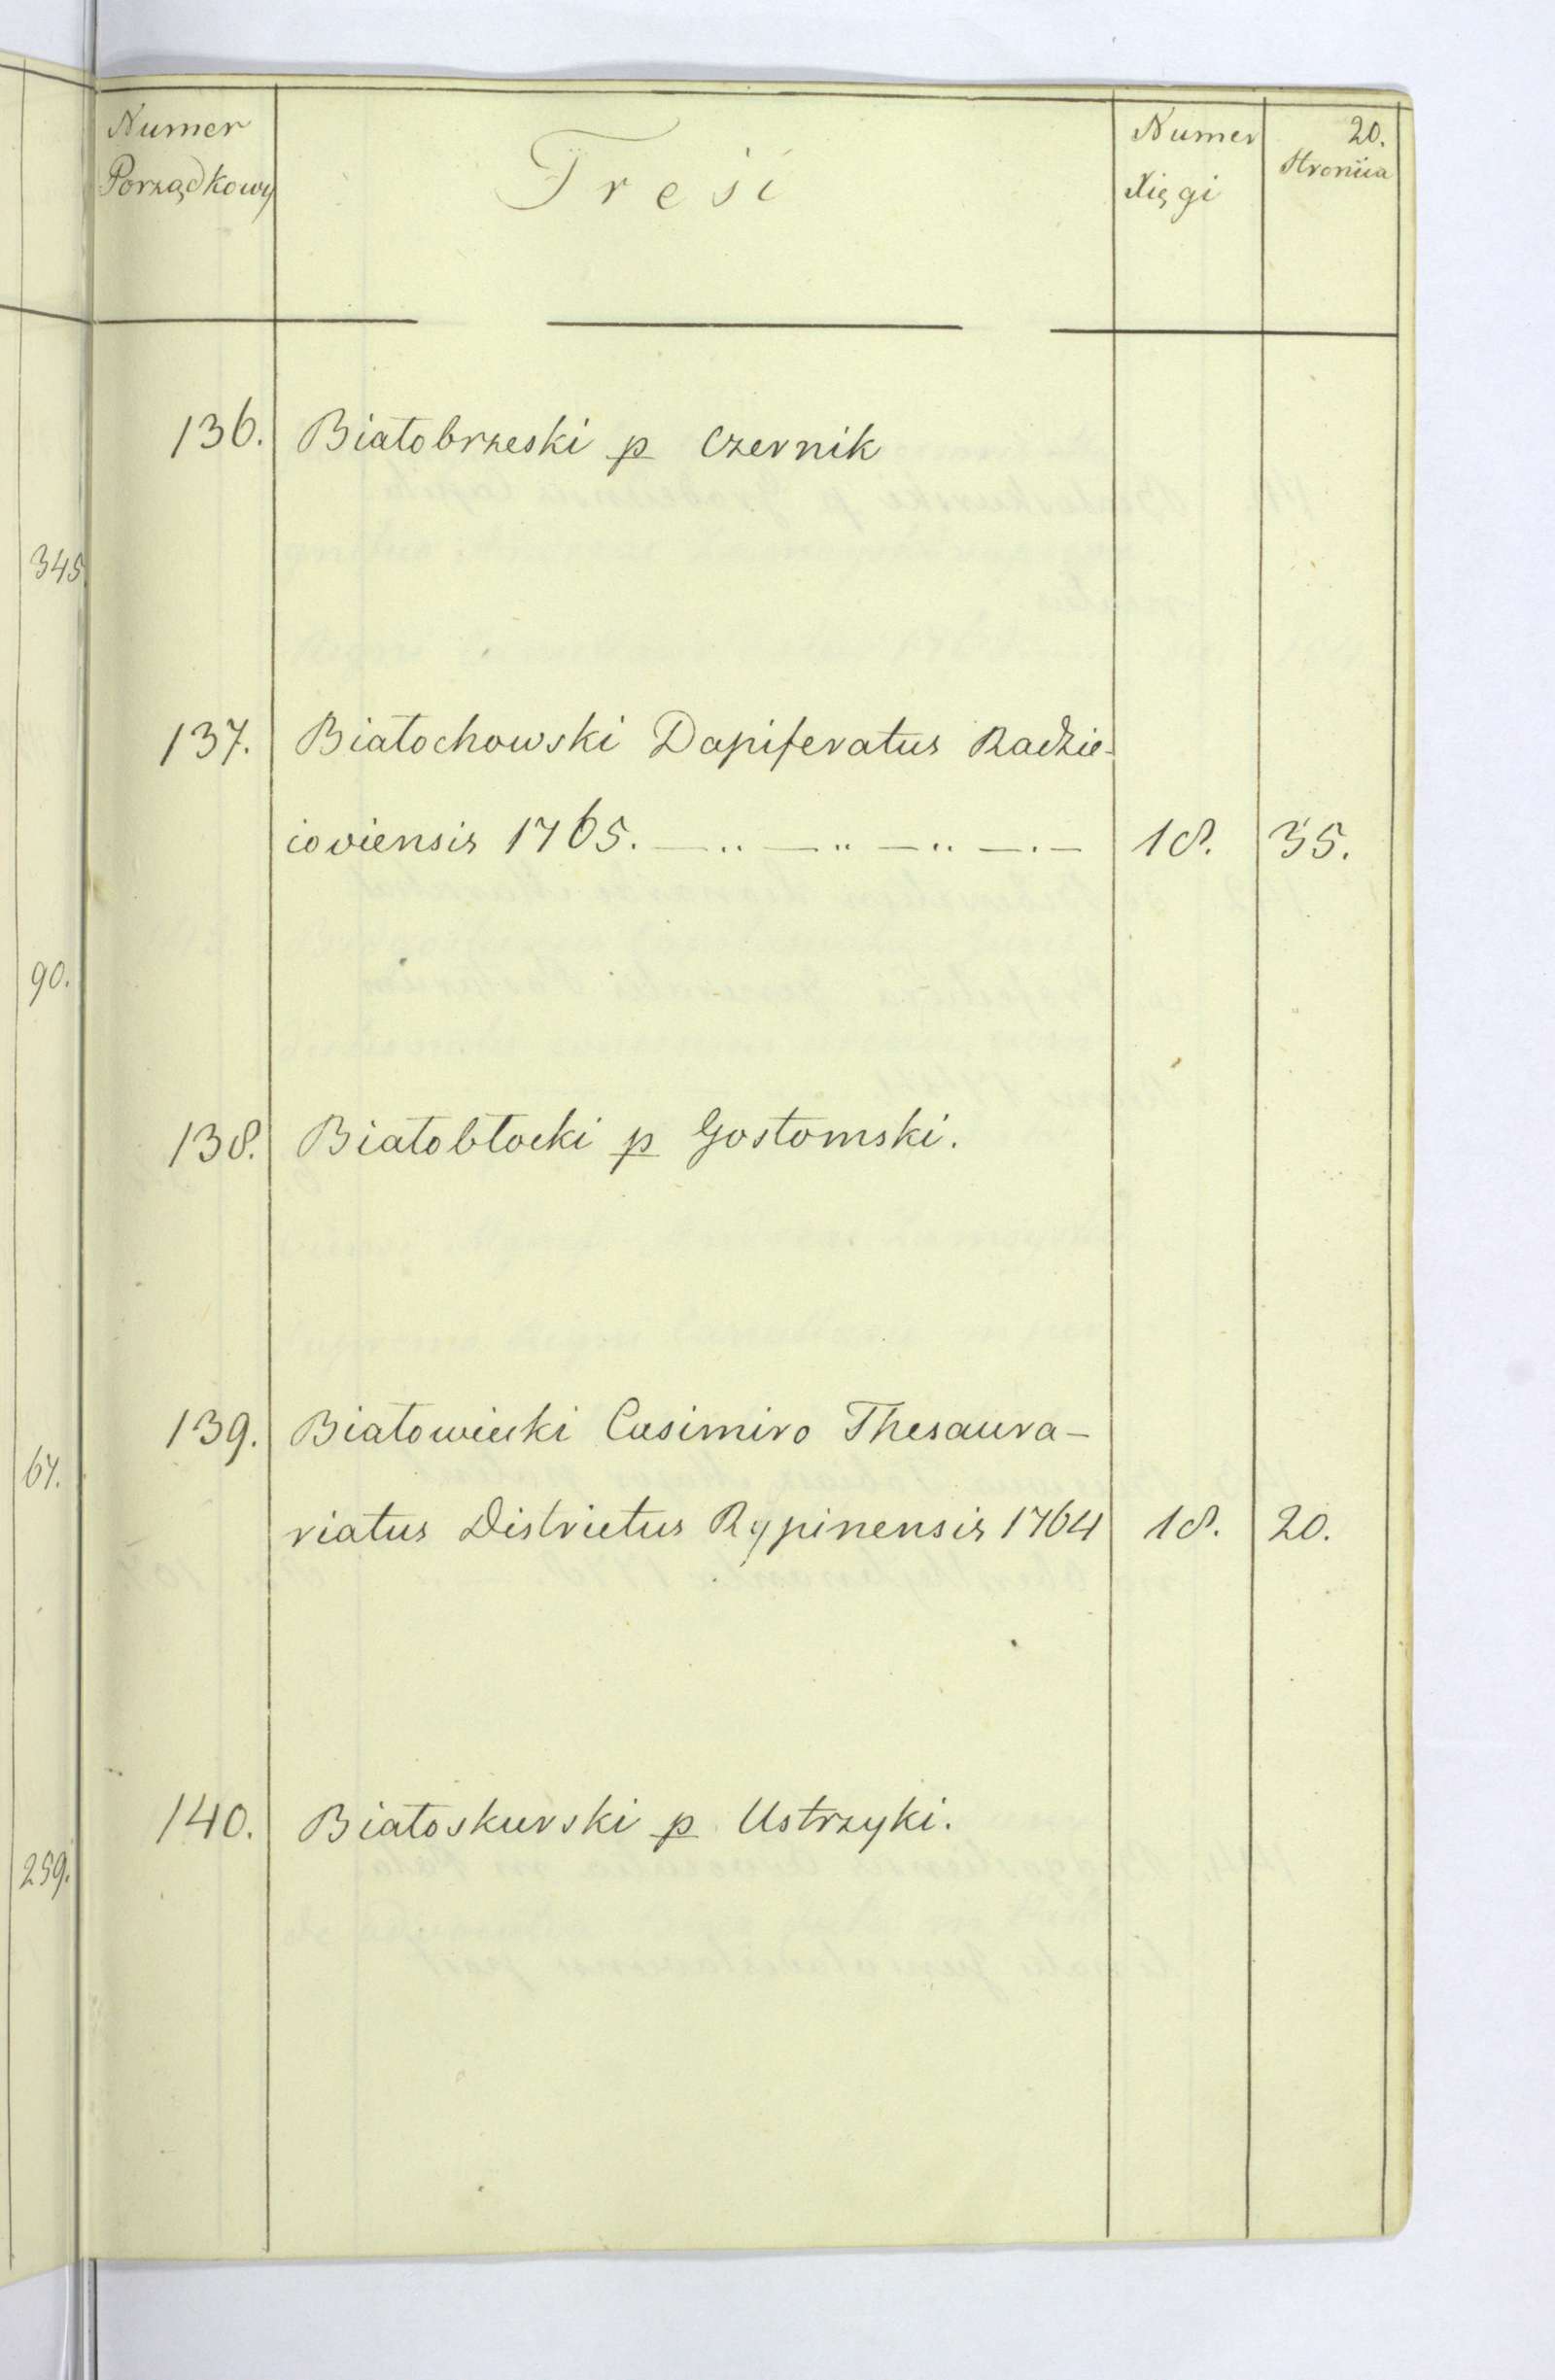 20.
Numer Porządkowy
Treść
Numer Xięgi
Stronica
345.
90.
67.
259.
136. Białobrzeski p Czernik
137. Białochowski Dapiferatus Radzie-
ioviensis 1765. — „ — „ — „ — . — 18. 35.
138. Białobłocki p Gostomski.
139. Białowiecki Casimiro Thesaura-
riatus Districtus Rypinensis 1764 18. 20.
140. Białoskurski p Ustrzyki.